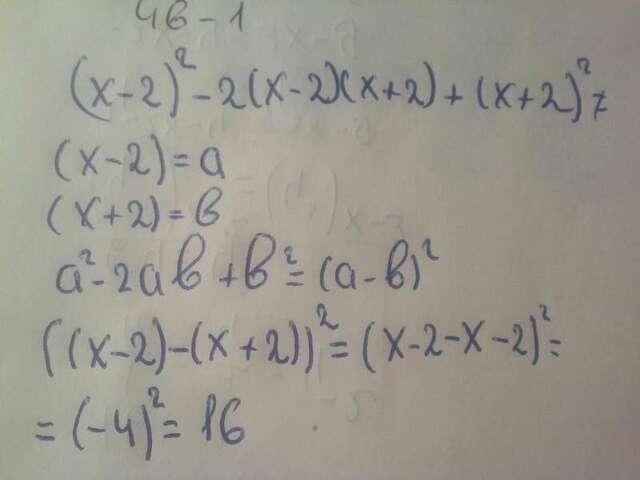 4в-1
(x-2)²-2(x-2)(x+2)+(x+2)²=
(x-2)=a
(x+2)=в
a²-2aв+в²=(a-в)²
((x-2)-(x+2))²=(x-2-x-2)²=
=(-4)²=16